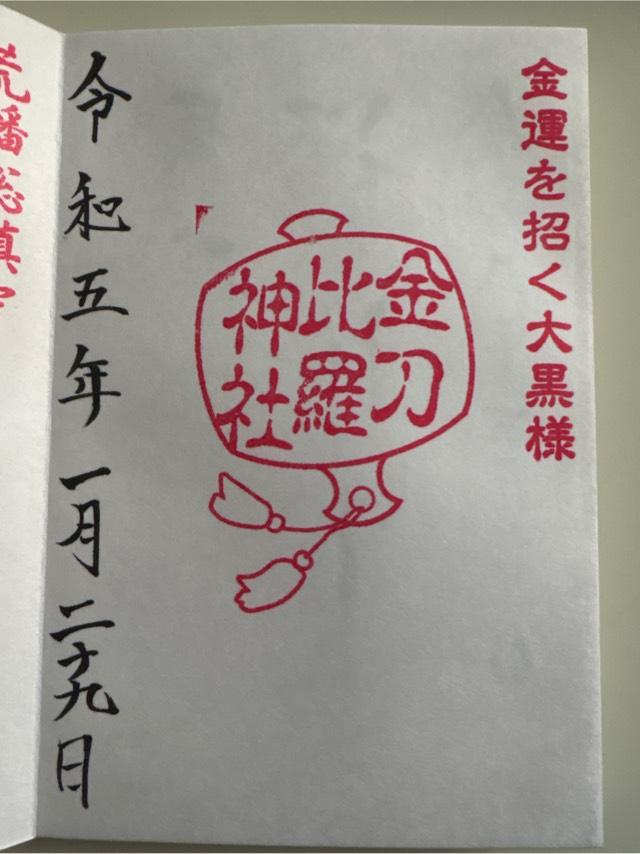 金運を招く大黒様
金刀
比羅
神社
令和五年一月二十九日